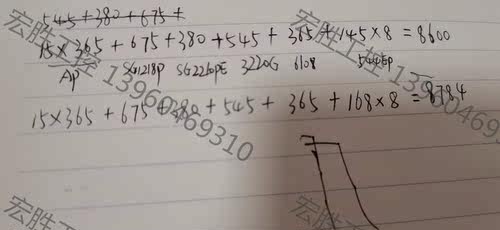 545+380+675+
15×365+675+380+545+365+145×8=8600
AP SG1218P SG2260PE 3220G 6108 5445P
15×365+675+380+545+365+168×8=8784
宏胜工控 13960469310
宏胜工控 13960469310
宏胜工控
宏胜工控